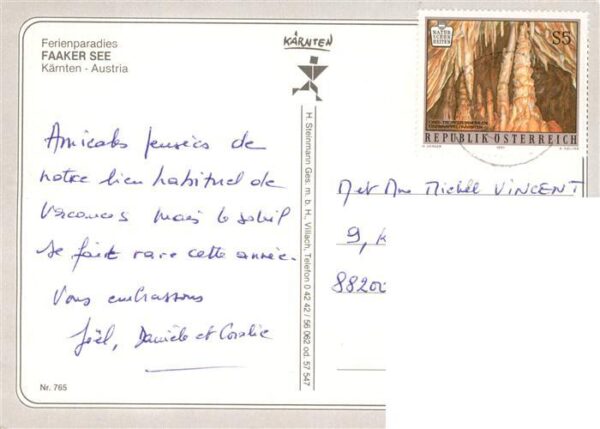 Ferienparadies
FAAKER SEE
Kärnten · Austria
Amicales pensées de
notre lieu habituel de
vacances mais le soleil
se fait rare cette année.
Vous embrassons
Joël, Danièle et Coralie
Nr. 765
KÄRNTEN
H. Steinmann Ges. m. b. H., Villach, Telefon 0 42 42 / 56 062 od. 57 547
NATUR
SCHÖN
HEITEN
S5
REPUBLIK ÖSTERREICH
1991
M et Mme Michel VINCENT
9,
88200